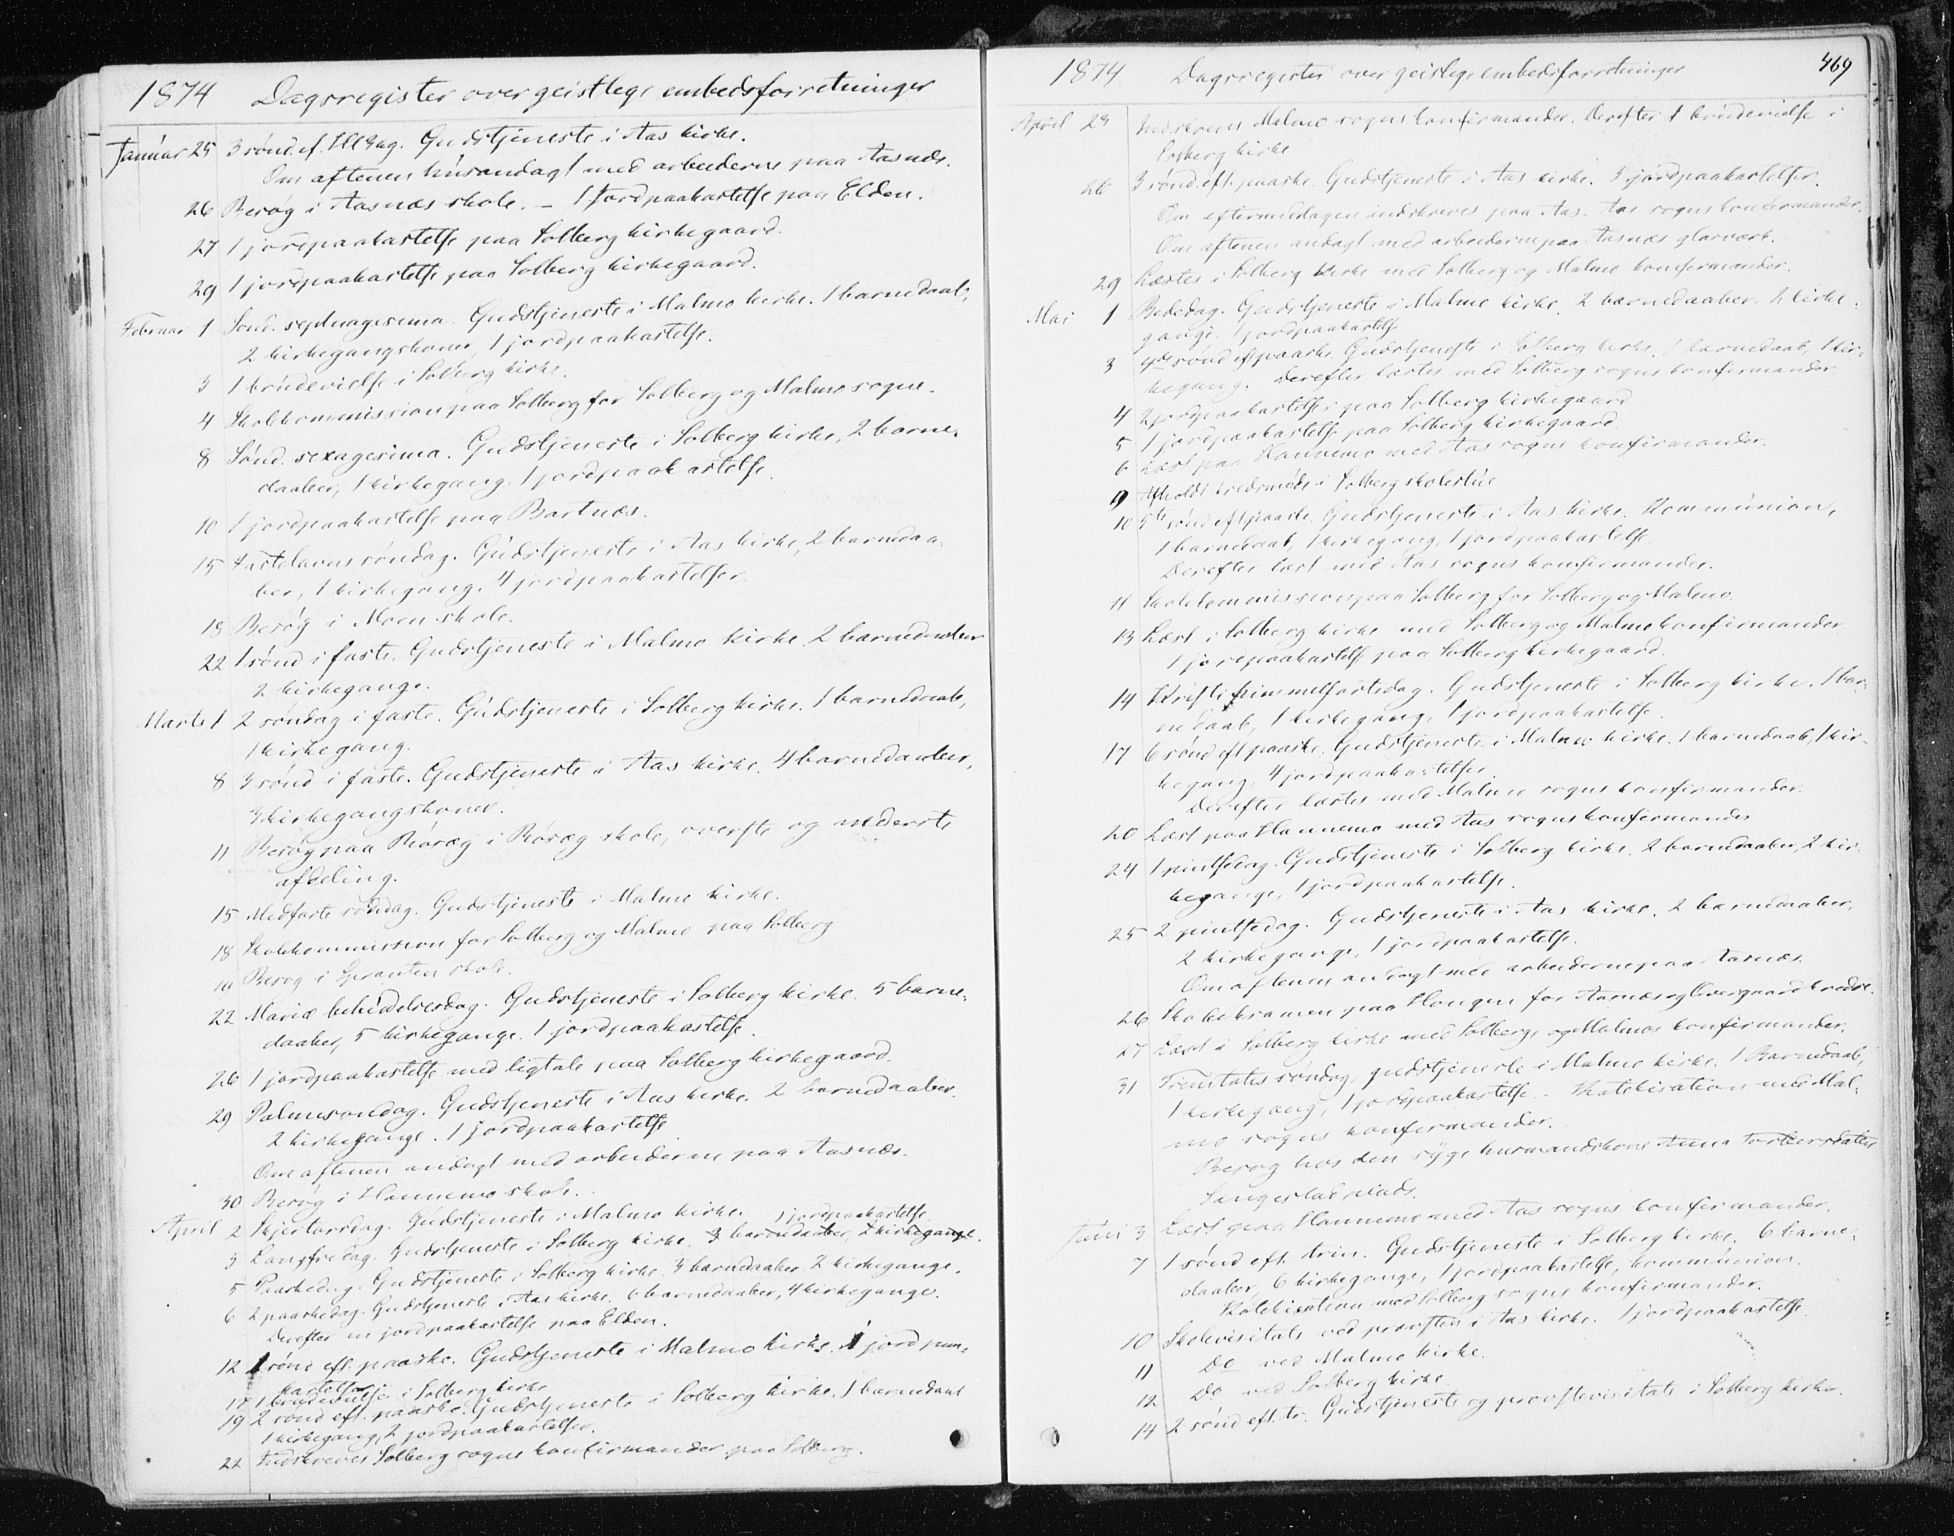 1874 Dagsregister over geistlege embedsforretninger
Januar 25 3 sønd. ef. Gudstjeneste i Aas kirke.
Om aftenen husandagt med arbeiderne paa Aasnæs.
26 Besøg i Aasnæs skole. – 1 jordpaakastelse paa Elden.
27 1 jordpaakastelse paa Solberg kirkegaard.
29 1 jordpaakastelse paa Solberg kirkegaard.
Februar 1 Sønd. septuagesima. Gudstjeneste i Malmo kirke. 1 barnedaab,
2 kirkegangskoner, 1 jordpaakastelse.
3 1 brudevielse i Solberg kirke.
4 Skolekommission paa Solberg for Solberg og Malmo sogne.
8 Sønd. sexagesima. Gudstjeneste i Solberg kirke, 2 barne-
daaber, 1 kirkegang, 1 jordpaakastelse.
10 1 jordpaakastelse paa Bartnæs.
15 Fastelavnssøndag. Gudstjeneste i Aas kirke, 2 barnedaa-
ber, 1 kirkegang, 4 jordpaakastelser.
18 Besøg i Moen skole.
22 1 sønd i faste. Gudstjeneste i Malmo kirke. 2 barnedaaber
2 kirkegange.
Marts 1 2 søndag i faste. Gudstjeneste i Solberg kirke. 1 barnedaab,
1 kirkegang.
8 3 sønd i faste. Gudstjeneste i Aas kirke. 4 barnedaaber,
3 kirkegangskoner.
11 Besøg paa Røræg i Røræg skole, øverste og nederste
afdeling.
15 Midfaste søndag. Gudstjeneste i Malmo kirke.
18 Skolekommission for Solberg og Malmo paa Solberg
19 Besøg i skole.
22 Mariæ bebudelsesdag. Gudstjeneste i Solberg kirke. 5 barne-
daaber, 5 kirkegange. 1 jordpaakastelse.
26 1 jordpaakastelse med ligtale paa Solberg kirkegaard.
29 Palmesøndag. Gudstjeneste i Aas kirke. 2 barnedaaber.
2 kirkegange. 1 jordpaakastelse
Om aftenen andagt med arbeiderne paa Aasnæs.
30 Besøg i Hannemo skole.
April 2 Skjertorsdag. Gudstjeneste i Malmo kirke. 1 jordpaakastelse
3 Langfredag. Gudstjeneste i Solberg kirke. 3 barnedaaber, 2 kirkegange.
5 Paaskedag. Gudstjeneste i Solberg kirke. 3 barnedaaber 2 kirkegange.
6 2 paaskedag. Gudstjeneste i Aas kirke. 6 barnedaaber, 4 kirkegange.
Derefter en jordpaakastelse paa Elden.
12 1 sønd eft. paaske. Gudstjeneste i Malmo kirke. 1 jordpaa-
kastelse
17 1 brudevielse i Solberg kirke
19 2 sønd eft. paaske. Gudstjeneste i Solberg kirke. 1 barnedaab
1 kirkegang, 2 jordpaakastelser.
22 Indskreves Solberg sogns konfirmander paa Solberg.
1874 Dagsregister over geistlege embedsforretninger 469
April 23 Indskreves Malmo sogns konfirmander. Derefter 1 brudevielse i
Solberg kirke
26 3 sønd. eft. paaske. Gudstjeneste i Aas kirke. 3 jordpaakastelser.
Om eftermiddagen indskreves paa Aas. Aas sogns konfirmander.
Om aftenen andagt med arbeiderne paa Aasnæs glasværk.
29 Læstes i Solberg kirke med Solberg og Malmo konfirmander.
Mai 1 Bededag. Gudstjeneste i Malmo kirke. 2 barnedaaber. 2 kirke-
gange. 1 jordpaakastelse
3 4de sønd eft paaske. Gudstjeneste i Solberg kirke. 1 barnedaab, 1 kir-
kegang. Derefter læstes med Solberg sogns konfirmander
4 2 jordpaakastelser paa Solberg kirkegaard
5 1 jordpaakastelse paa Solberg kirkegaard.
6 Læst paa Hannemo med Aas sogns konfirmander.
9 Afholdt kredsmøde i Solberg skolestue
10 5te sønd eft paaske. Gudstjeneste i Aas kirke. Kommunion,
1 barnedaab, 1 kirkegang, 1 jordpaakastelse.
Derefter læst med Aas sogns konfirmander.
11 Skolekommission paa Solberg for Solberg og Malmo.
13 Læst i Solberg kirke med Solberg og Malmo konfirmander
1 jordpaakastelse paa Solberg kirkegaard.
14 Kristi himmelfartsdag. Gudstjeneste i Solberg kirke. 1 bar-
nedaab, 1 kirkegang, 1 jordpaakastelse.
17 6 sønd eft paaske. Gudstjeneste i Malmo kirke. 1 barnedaab, 1 kir-
kegang, 4 jordpaakastelser.
Derefter læstes med Malmo sogns konfirmander.
20 Læst paa Hannemo med Aas sogns konfirmander
24 1 pintsedag. Gudstjeneste i Solberg kirke. 2 barnedaaber, 2 kir-
kegange, 1 jordpaakastelse.
25 2 pintsedag. Gudstjeneste i Aas kirke. 2 barnedaaber,
2 kirkegange, 1 jordpaakastelse.
Om aftenen andagt med arbeiderne paa Aasnæs.
26 Skoleeksamen paa Haugen for Aasnæs og kredse.
27 Læst i Solberg kirke med Solbergs og Malmos konfirmander.
31 Trinitatis søndag, gudstjeneste i Malmo kirke. 1 Barnedaab,
1 kirkegang, 1 jordpaakastelse. – Katekisation med Mal-
mo sogns konfirmander.
Besøg hos den syge husmandskone Anna Torbersdatter
plads.
Juni 3 Læst paa Hannemo med Aas sogns konfirmander.
7 1 sønd eft. trin. Gudstjeneste i Solberg kirke. 6 barne-
daaber, 6 kirkegange, 1 jordpaakastelse, kommunion.
Katekisation med Solberg sogns konfirmander.
10 Skolevisitats ved provsten i Aas kirke. 1 jordpaakastelse.
11 Do ved Malmo kirke.
12 Do ved Solberg kirke.
14 2 sønd eft. tr. Gudstjeneste og provstevisitats i Solberg kirke.